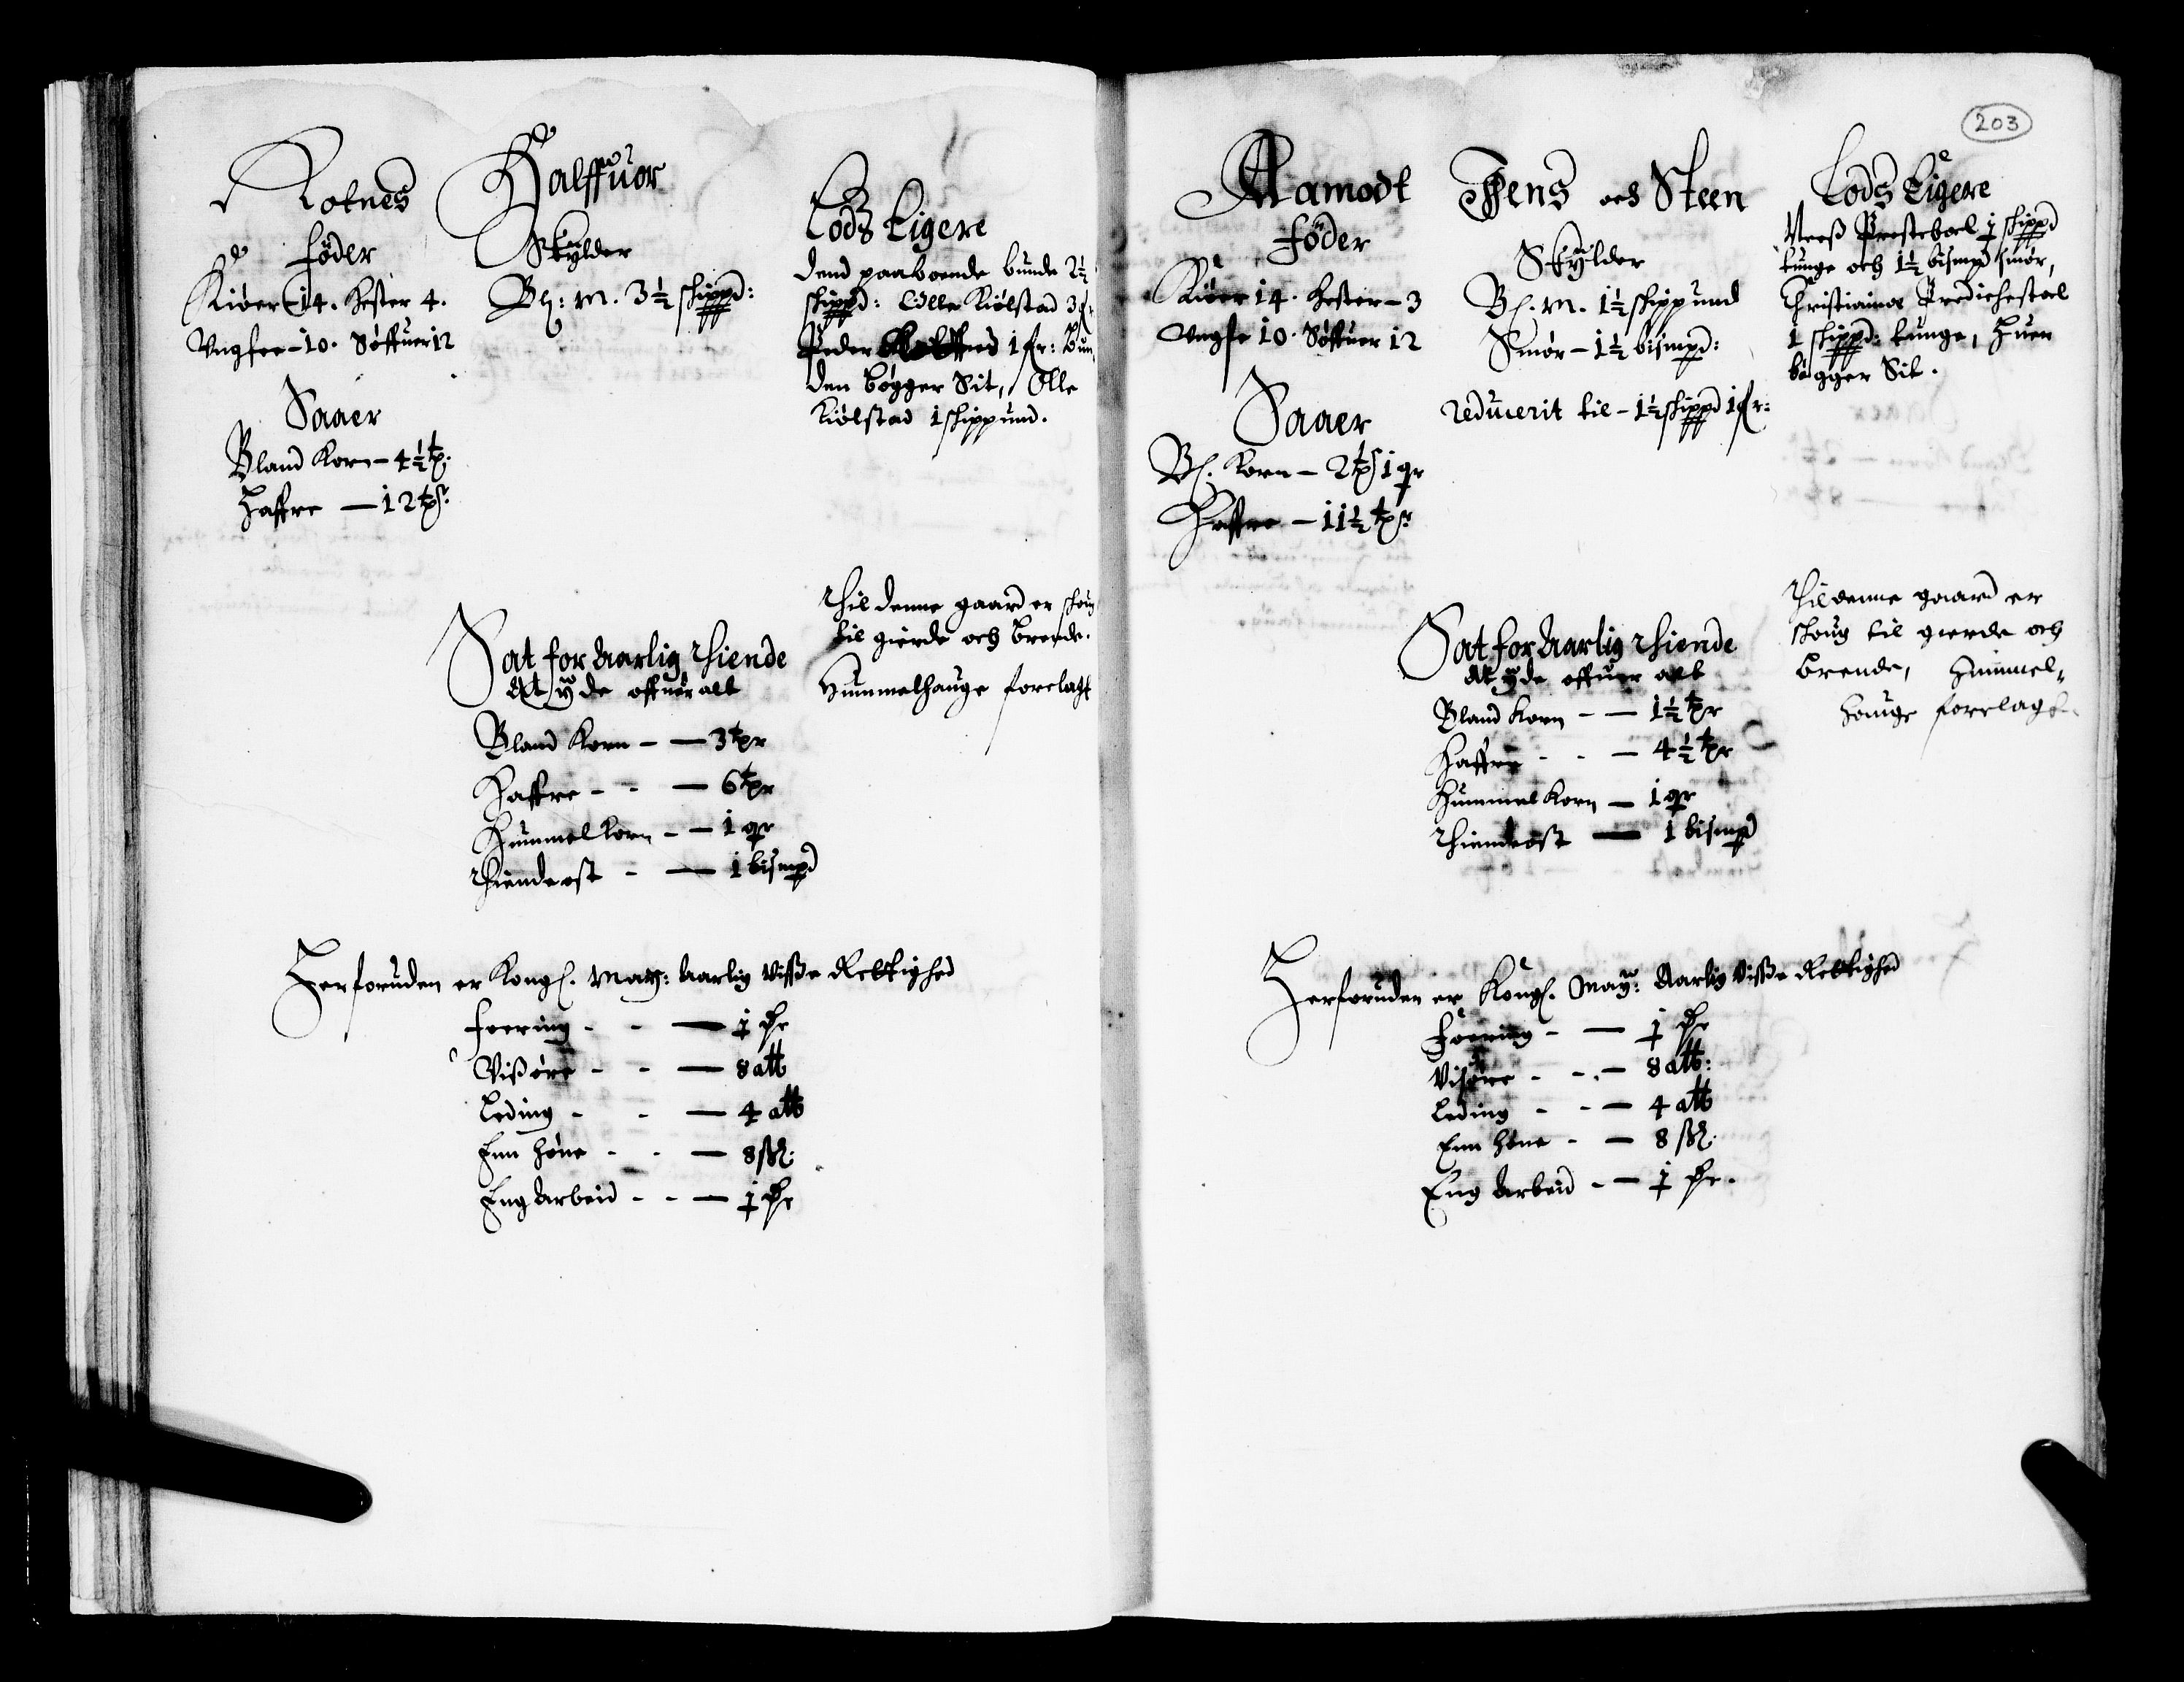 Rotnes
Föder
Kiöer - 14. Hester 4.
Ungfee - 10. Söffuer 12
Saaer
Bland Korn - 4½ tr:
Haffre - 12 tr:
Halffuor
Skylder
Bl: M. 3½ schippd:
Lods Eigere
Dend paaboende bunde 2½
schippd: Olle Kiölstad 3 fr
Peder 1 fr: Bun
den bögger Sit, Olle
Kiölstad 1 schippund.
Thil denne gaard er schoug
til gierde och brende.
Hummelhauge forelagt
Sat for Aarlig Thiende
At yde offuer alt
Bland Korn - - 3 tr
Haffre - - - 6 tr
Hummelkorn - - 1 qr
Thiende ost - - 1 bismpd
Herforuden er Kongl. May: Aarlig Visse Rettighed
Foering - - - 1 dr
Vissöre - - - 8 att
Leding - - - 4 att
Enn höne - - - 8 sk:
Eng Arbeid - - - 1 dr
203
Aamodt
Föder
Kiöer 14. Hester - 3
Ungfe 10. Söffuer 12
Saaer
Bl. Korn - 2 tr 1 qr
Haffre - 11½ tr
Jens och Steen
Skylder
Bl. M. 1½ schippund
Smör - 1½ bismpd:
reducerit til - 1½ schippd 1 fr:
Lods Eigere
Presteboel 1 schippd
tunge och 1½ bismpd smör,
Christianiæ Predichestoel
1 schippd: tunge, Huer
bögger Sit.
Thil denne gaard er
schoug til gierde och
brende, Hummel-
houge forelagt
Sat for Aarlig Thiende
At yde offuer alt
Bland Korn - - 1½ tr
Haffre - - - 4½ tr
Hummel Korn - 1 qr
Thiende ost - 1 bismpd
Herforuden er Kongl. May: Aarlig Visse Rettighed
Foering - - 1 dr
Visöre - - - 8 att:
Leding - - - 4 att
Enn höne - - 8 sk:
Eng Arbeid - - 1 dr.